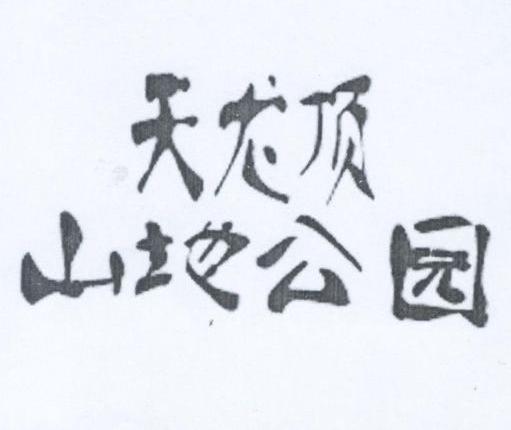 天龙顶
山地公园